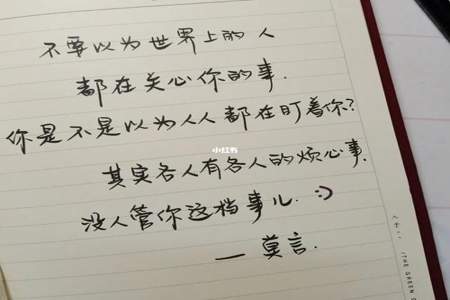 不要以为世界上的人
都在关心你的事.
你是不是以为人人都在盯着你?
小红书
其实各人有各人的烦心事.
没人管你这档事儿. :)
— 莫言.